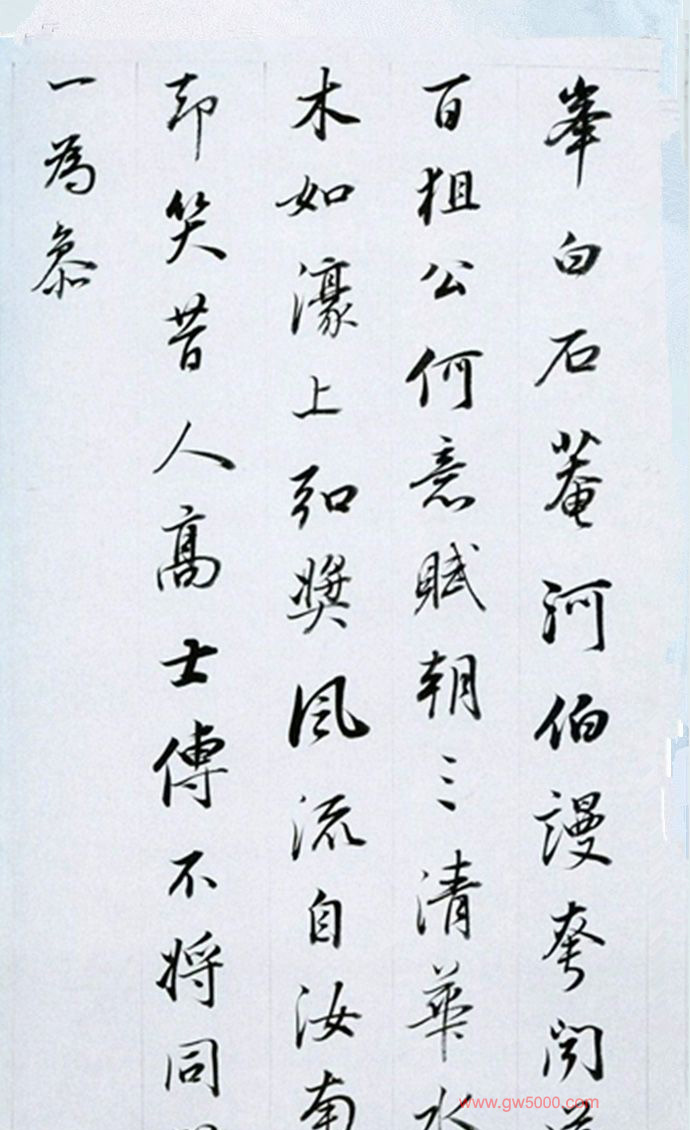 峯白石菴河伯謾夸聞
百狙公何意賦朝三清華水
木如濠上弘奬風流自汝南
却笑昔人高士傳不將同
一為叅
www.gw5000.com